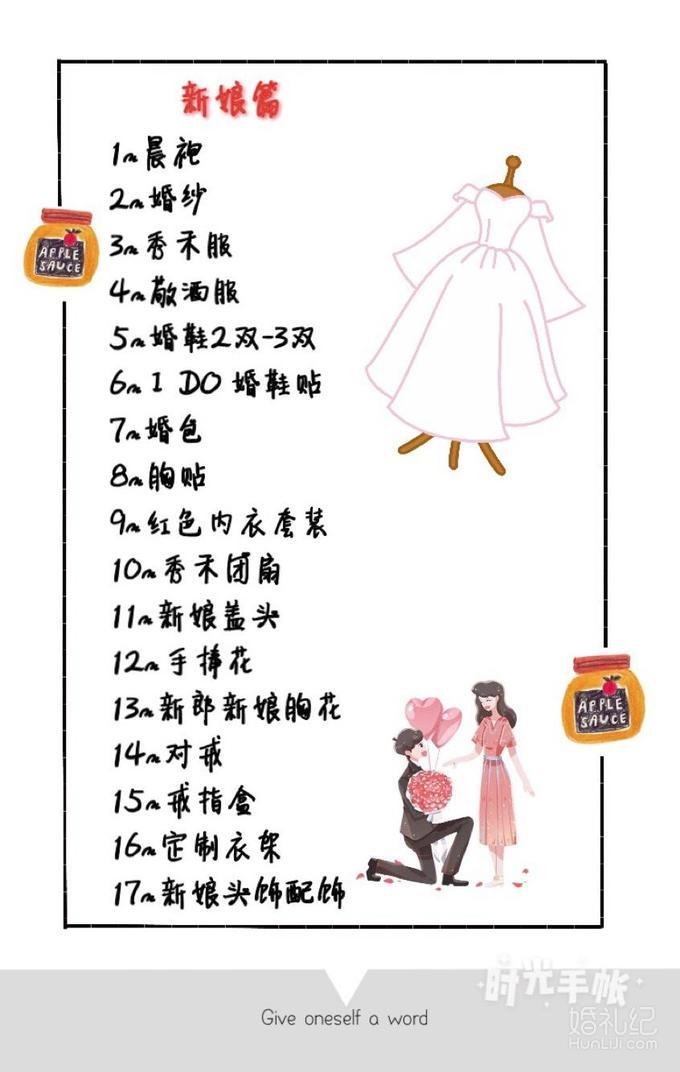 新娘篇
1、晨袍
2、婚纱
3、秀禾服
4、敬酒服
5、婚鞋2双-3双
6、I DO 婚鞋贴
7、婚包
8、胸贴
9、红色内衣套装
10、秀禾团扇
11、新娘盖头
12、手捧花
13、新郎新娘胸花
14、对戒
15、戒指盒
16、定制衣架
17、新娘头饰配饰
APPLE
SAUCE
APPLE
SAUCE
时光手帐
Give oneself a word
婚礼纪
HUNLIJI.COM